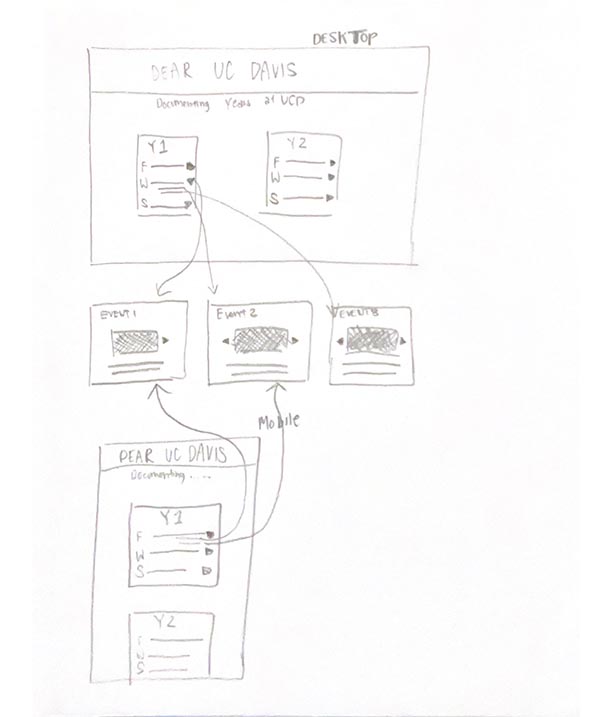 DESKTOP
DEAR UC DAVIS
Documenting Years at UCD
Y1
F
W
S
Y2
F
W
S
EVENT 1
Event 2
EVENT 3
Mobile
DEAR UC DAVIS
Documenting ....
Y1
F
W
S
Y2
F
W
S